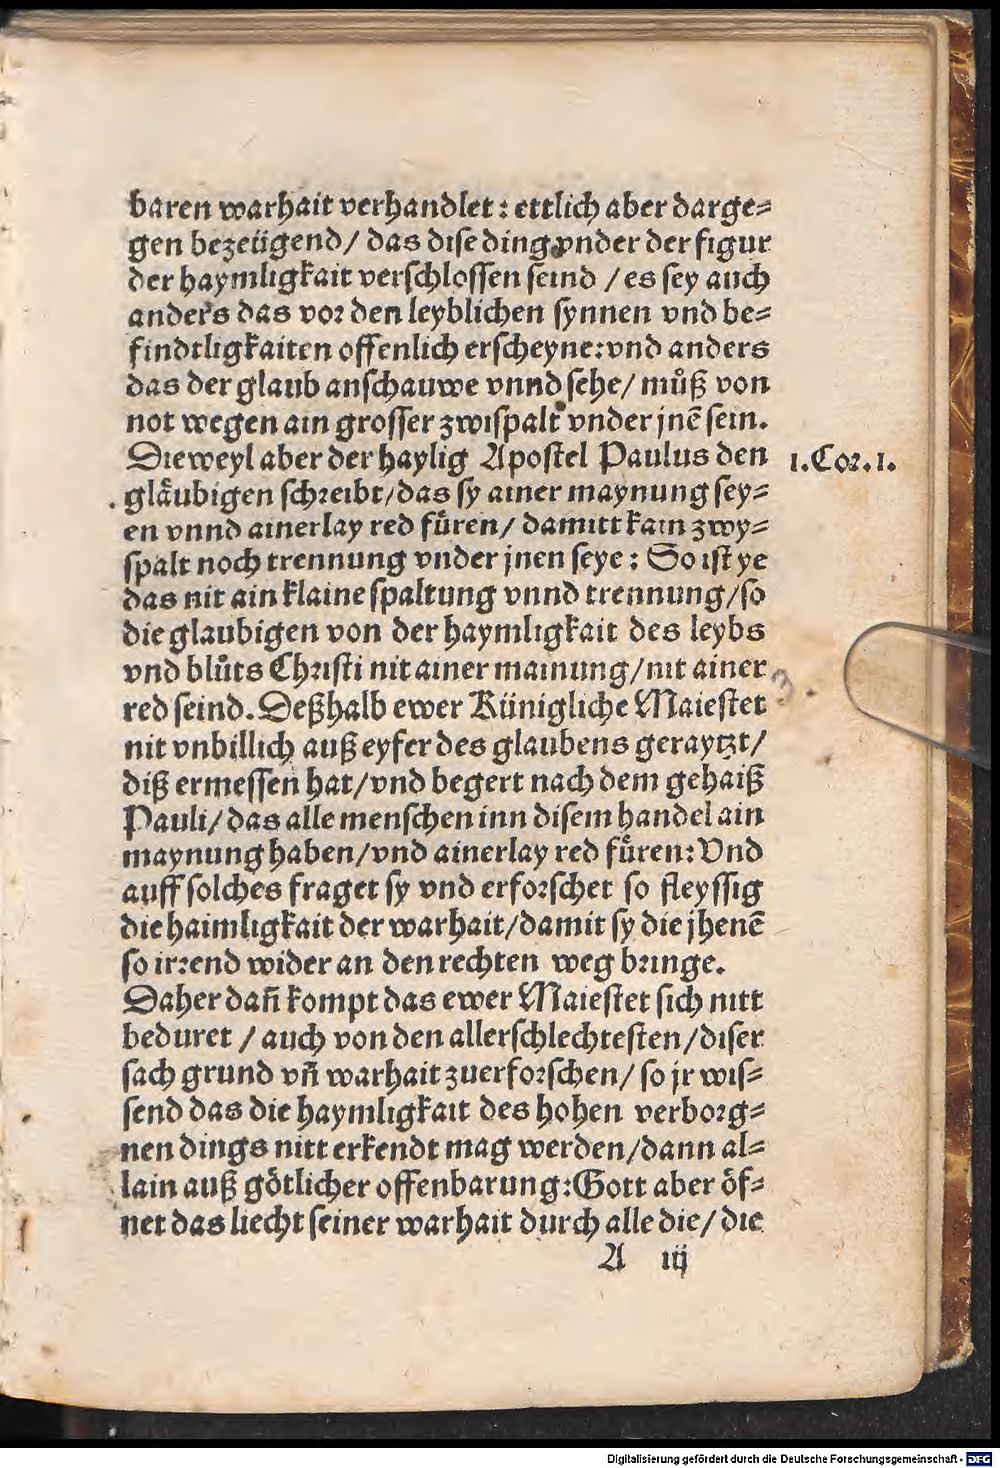 baren warhait verhandlet: ettlich aber darge⸗
gen bezeügend/ das dise ding vnder der figur
der haymligkait verschlossen seind / es sey auch
anders das vor den leyblichen synnen vnd be⸗
findtligkaiten offenlich erscheyne: vnd anders
das der glaub anschauwe vnnd sehe/ můß von
not wegen ain grosser zwispalt vnder jnē sein.
Dieweyl aber der haylig Apostel Paulus den
1.Cor.1.
glåubigen schreibt/das sy ainer maynung sey⸗
en vnnd ainerlay red fůren/ damitt kain zwy⸗
spalt noch trennung vnder jnen seye: So ist ye
das nit ain klaine spaltung vnnd trennung/so
die glaubigen von der haymligkait des leybs
vnd blůts Christi nit ainer mainung/nit ainer
red seind. Deßhalb ewer Künigliche Maiestet
nit vnbillich auß eyfer des glaubens geraytzt/
diß ermessen hat/vnd begert nach dem gehaiß
Pauli/das alle menschen inn disem handel ain
maynung haben/vnd ainerlay red fůren: Vnd
auff solches fraget sy vnd erforschet so fleyssig
die haimligkait der warhait/damit sy die jhenē
so irrend wider an den rechten weg bringe.
Daher dañ kompt das ewer Maiestet sich nitt
beduret / auch von den allerschlechtesten/diser
sach grund vñ warhait zuerforschen/ so jr wis⸗
send das die haymligkait des hohen verborg⸗
nen dings nitt erkendt mag werden/dann al⸗
lain auß götlicher offenbarung: Gott aber öf⸗
net das liecht seiner warhait durch alle die/ die
A iij
Digitalisierung gefördert durch die Deutsche Forschungsgemeinschaft - DFG